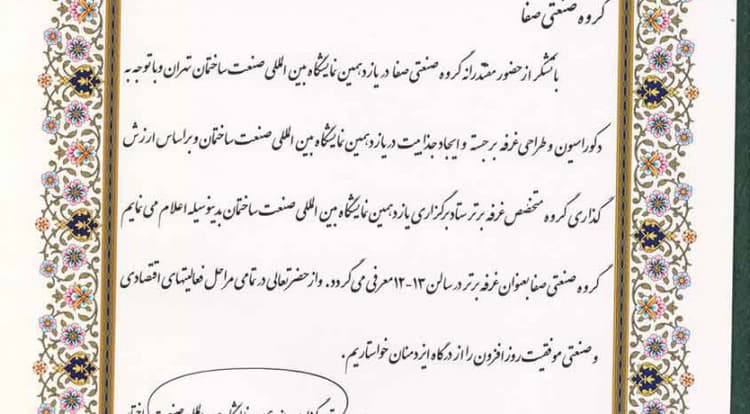 گروه صنعتی صفا
با تشکر از حضور مقتدرانه گروه صنعتی صفا در یازدهمین نمایشگاه بین المللی صنعت ساختمان تهران و با توجه به
دکوراسیون و طراحی غرفه برجسته و ایجاد جذابیت در یازدهمین نمایشگاه بین المللی صنعت ساختمان و براساس ارزش
گذاری گروه متخصص غرفه برتر ستاد برگزاری یازدهمین نمایشگاه بین المللی صنعت ساختمان بدینوسیله اعلام می نمایم
گروه صنعتی صفا بعنوان غرفه برتر در سالن ۱۳-۱۲ معرفی می گردد. و از حضرتعالی در تمامی مراحل فعالیتهای اقتصادی
و صنعتی موفقیت روز افزون را از درگاه ایزد منان خواستاریم.
نمایشگاه بین المللی صنعت ساختمان